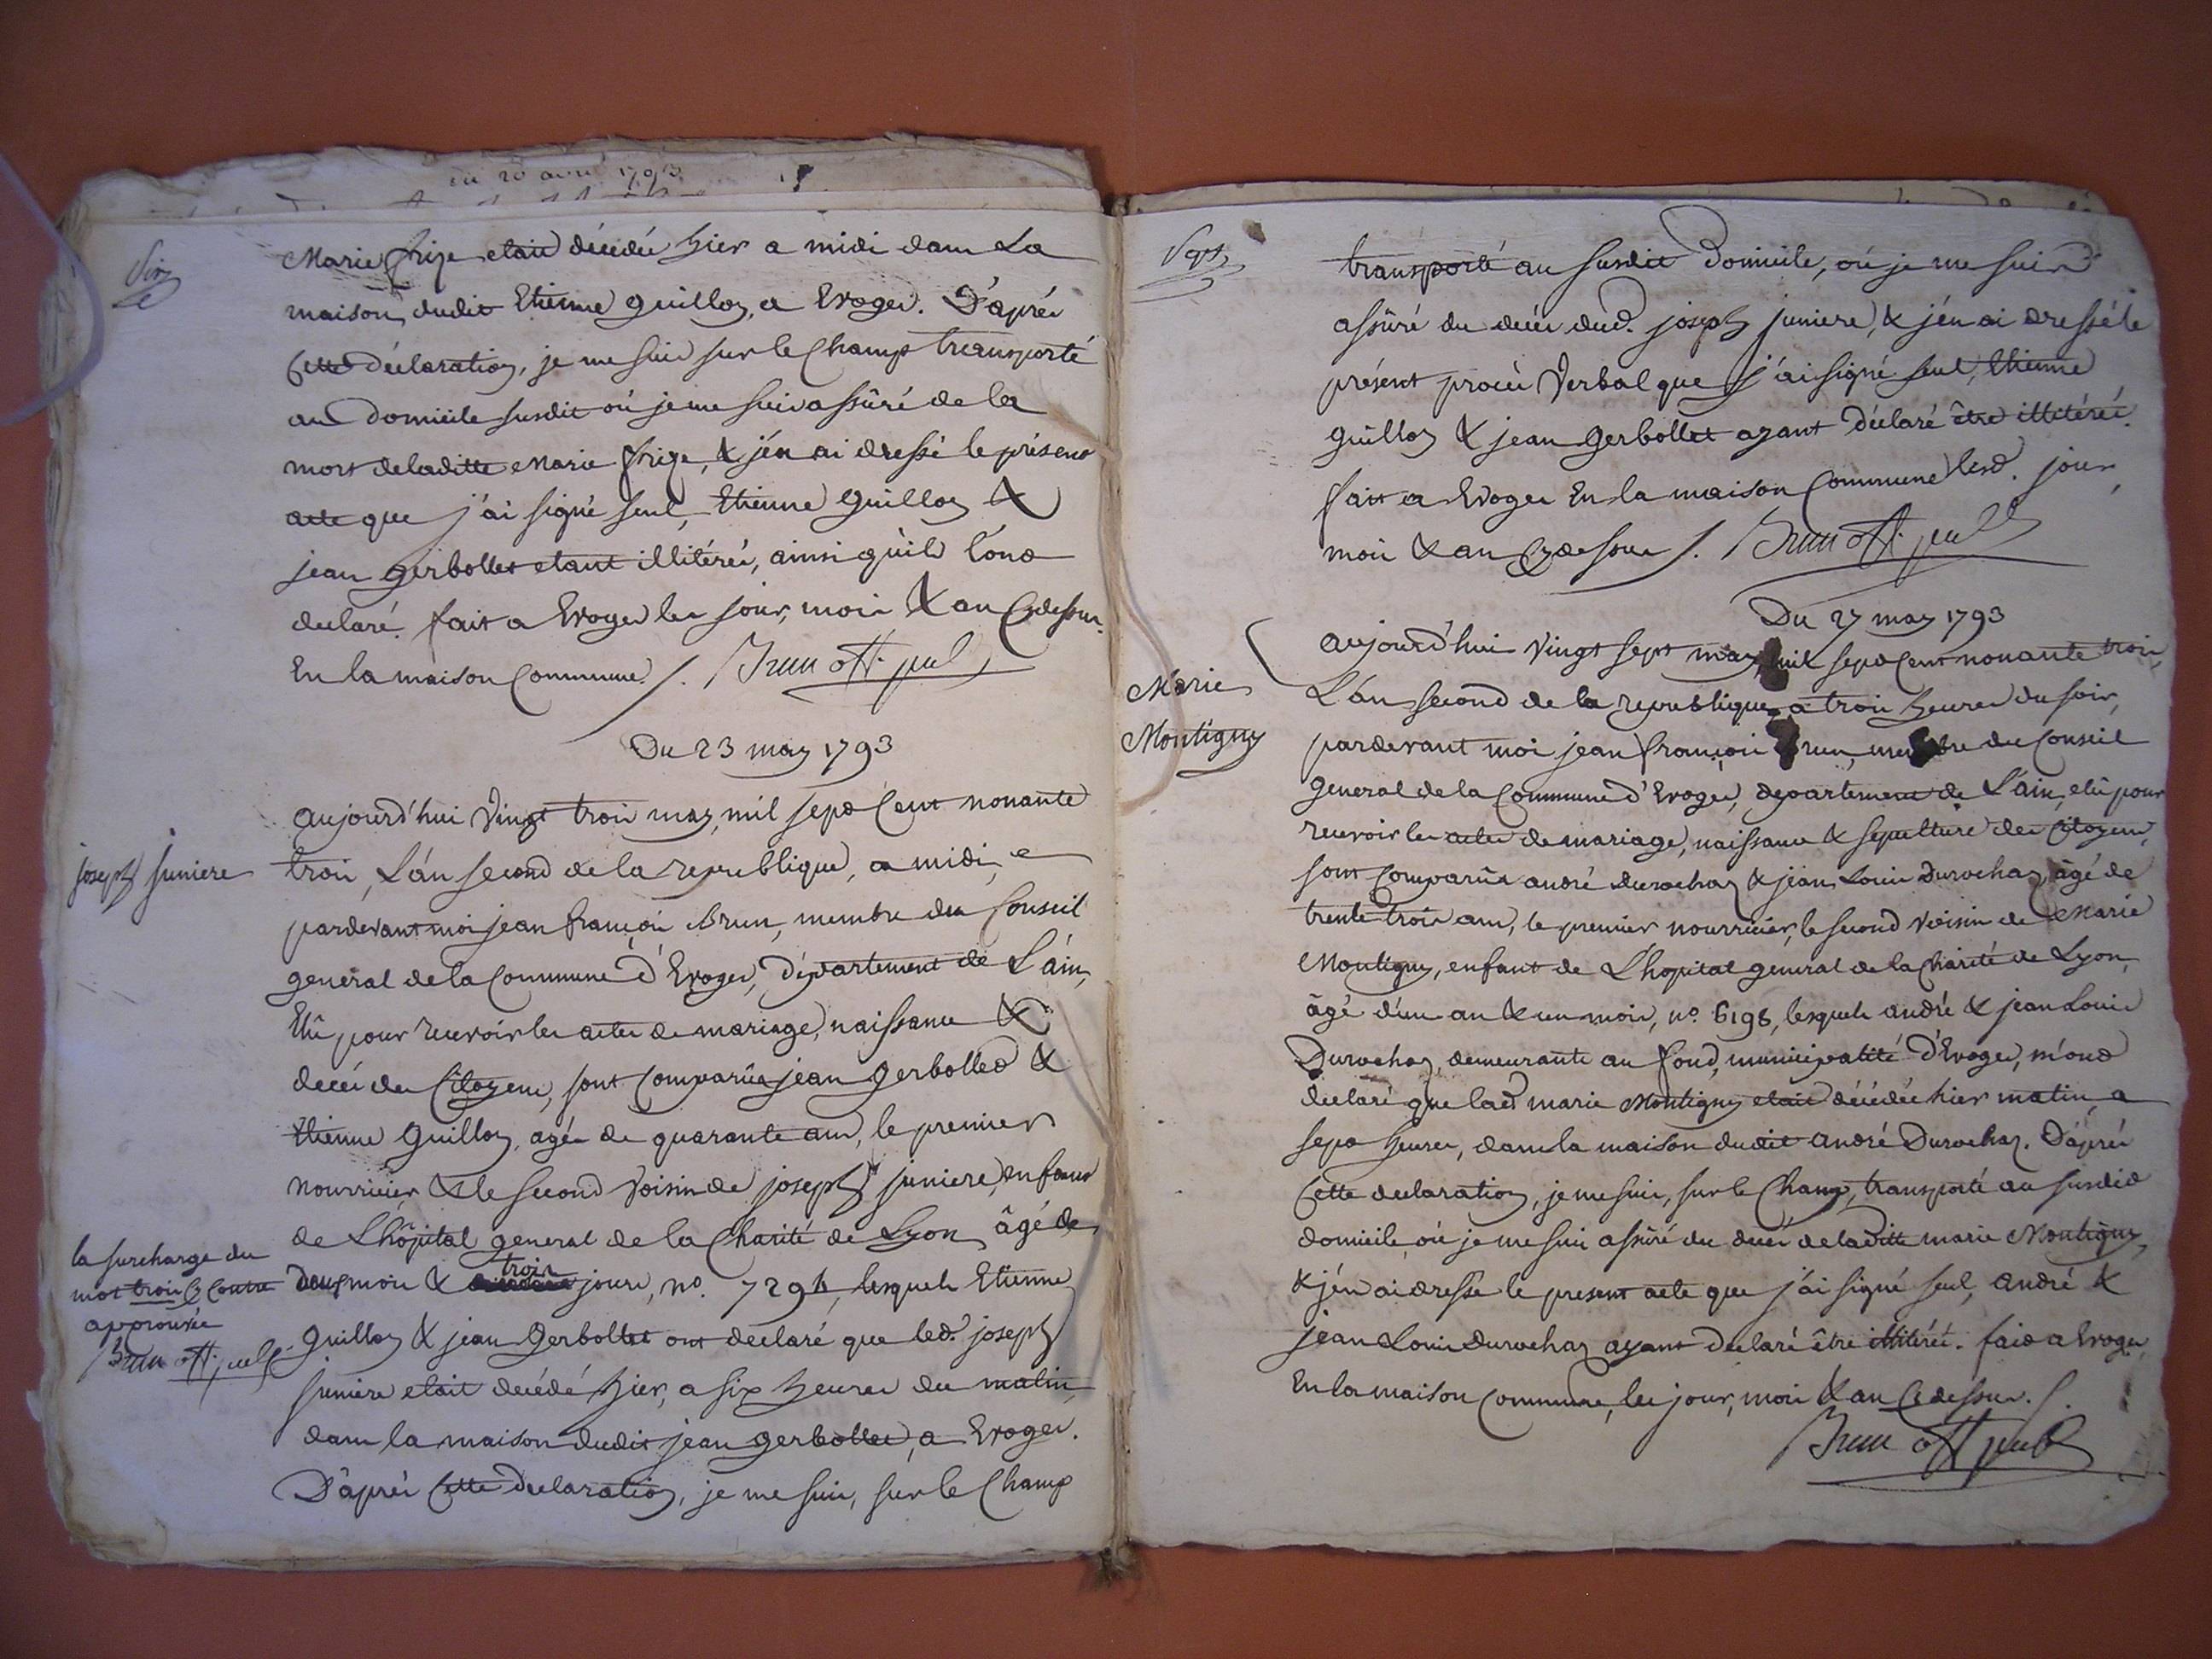 du 20 avril 1793
Six
Marie frize etait décédée hier a midi dans La
maison dudit Etienne Guilloz, a Evoges. D'après
Cette déclaration, je me suis sur le Champ transporté
au Domicile susdit où je me suis assûré de la
mort de laditte Marie frize, & j'én ai dressé le présent
acte que j'ái signé seul, Etienne Guilloz &
jean Gerbollet etant illitérés, ainsi qu'ils l'ónt
declaré. fait a Evoges les jour, mois & an Cydessus.
En la maison Commune /. Brun off. publ
Du 23 may 1793
joseph juniere
aujourd'hui Vingt trois may, mil sept Cent nonante
trois, L'án second de la republique, a midi,
pardevant moi jean françois Brun, membre du Conseil
general de la Commune d'Evoges, Département de L'áin,
Elû pour recevoir les actes de mariage, naissance &
decés des Citoyens, sont Comparûs jean Gerbollet &
Etienne Guilloz, agés de quarante ans, le premier
nourricier & le second Voisin de joseph juniere, enfant
de L'hôpital general de la Charité de Lyon, âgé de
deux mois & trois jours, no. 7294, lesquels Etienne
la surcharge du
mot trois Cy Contre
approuvée
Brun off. publ.
Guilloz & jean Gerbollet ont declaré que led. joseph
juniere etait decédé hier, a six heures du matin,
dans la maison dudit jean Gerbollet, a Evoges.
D'áprès Cette Declaration, je me suis, sur le Champ
Sept
transporté au susdit Domicile, où je me suis
assûré du decés dud. joseph juniere, & j'én ai dressé le
présent procès Verbal que j'ái signé seul, Etienne
Guilloz & jean Gerbollet ayant Déclaré être illitérés.
fait a Evoges En la maison Commune lesd. jour,
mois & an Cy dessus /. Brun off. publ
Du 27 may 1793
Marie
Montigny
aujourd'hui Vingt sept may, mil sept Cent nonante trois,
L'án second de la republique, a trois heures du soir,
pardevant moi jean françois Brun, membre du Conseil
general de la Commune d'Evoges, departement de L'áin, elû pour
recevoir les actes de mariage, naissance & sepulture des Citoyens,
sont Comparûs andré Durochaz & jean Louis Durochaz, âgé de
trente trois ans, le premier nourricier, le second Voisin de Marie
Montigny, enfant de L'hopital general de la Charité de Lyon,
âgé d'un an & un mois, no. 6198, lesquels andré & jean Louis
Durochaz, demeurants au fond, municipalité d'Evoges, m'ónt
declaré que lad. marie Montigny etait décédée hier matin, a
sept heures, dans la maison dudit andré Durochaz. D'áprès
Cette declaration, je me suis, sur le Champ, transporté au susdit
domicile, où je me suis assûré du decés de laditte marie Montigny,
& j'én ai dressé le present acte que j'ái signé seul, andré &
jean Louis Durochaz ayant declaré être illitérés. fait a Evoges,
En la maison Commune, les jour, mois & an Cy dessus. /.
Brun off publ